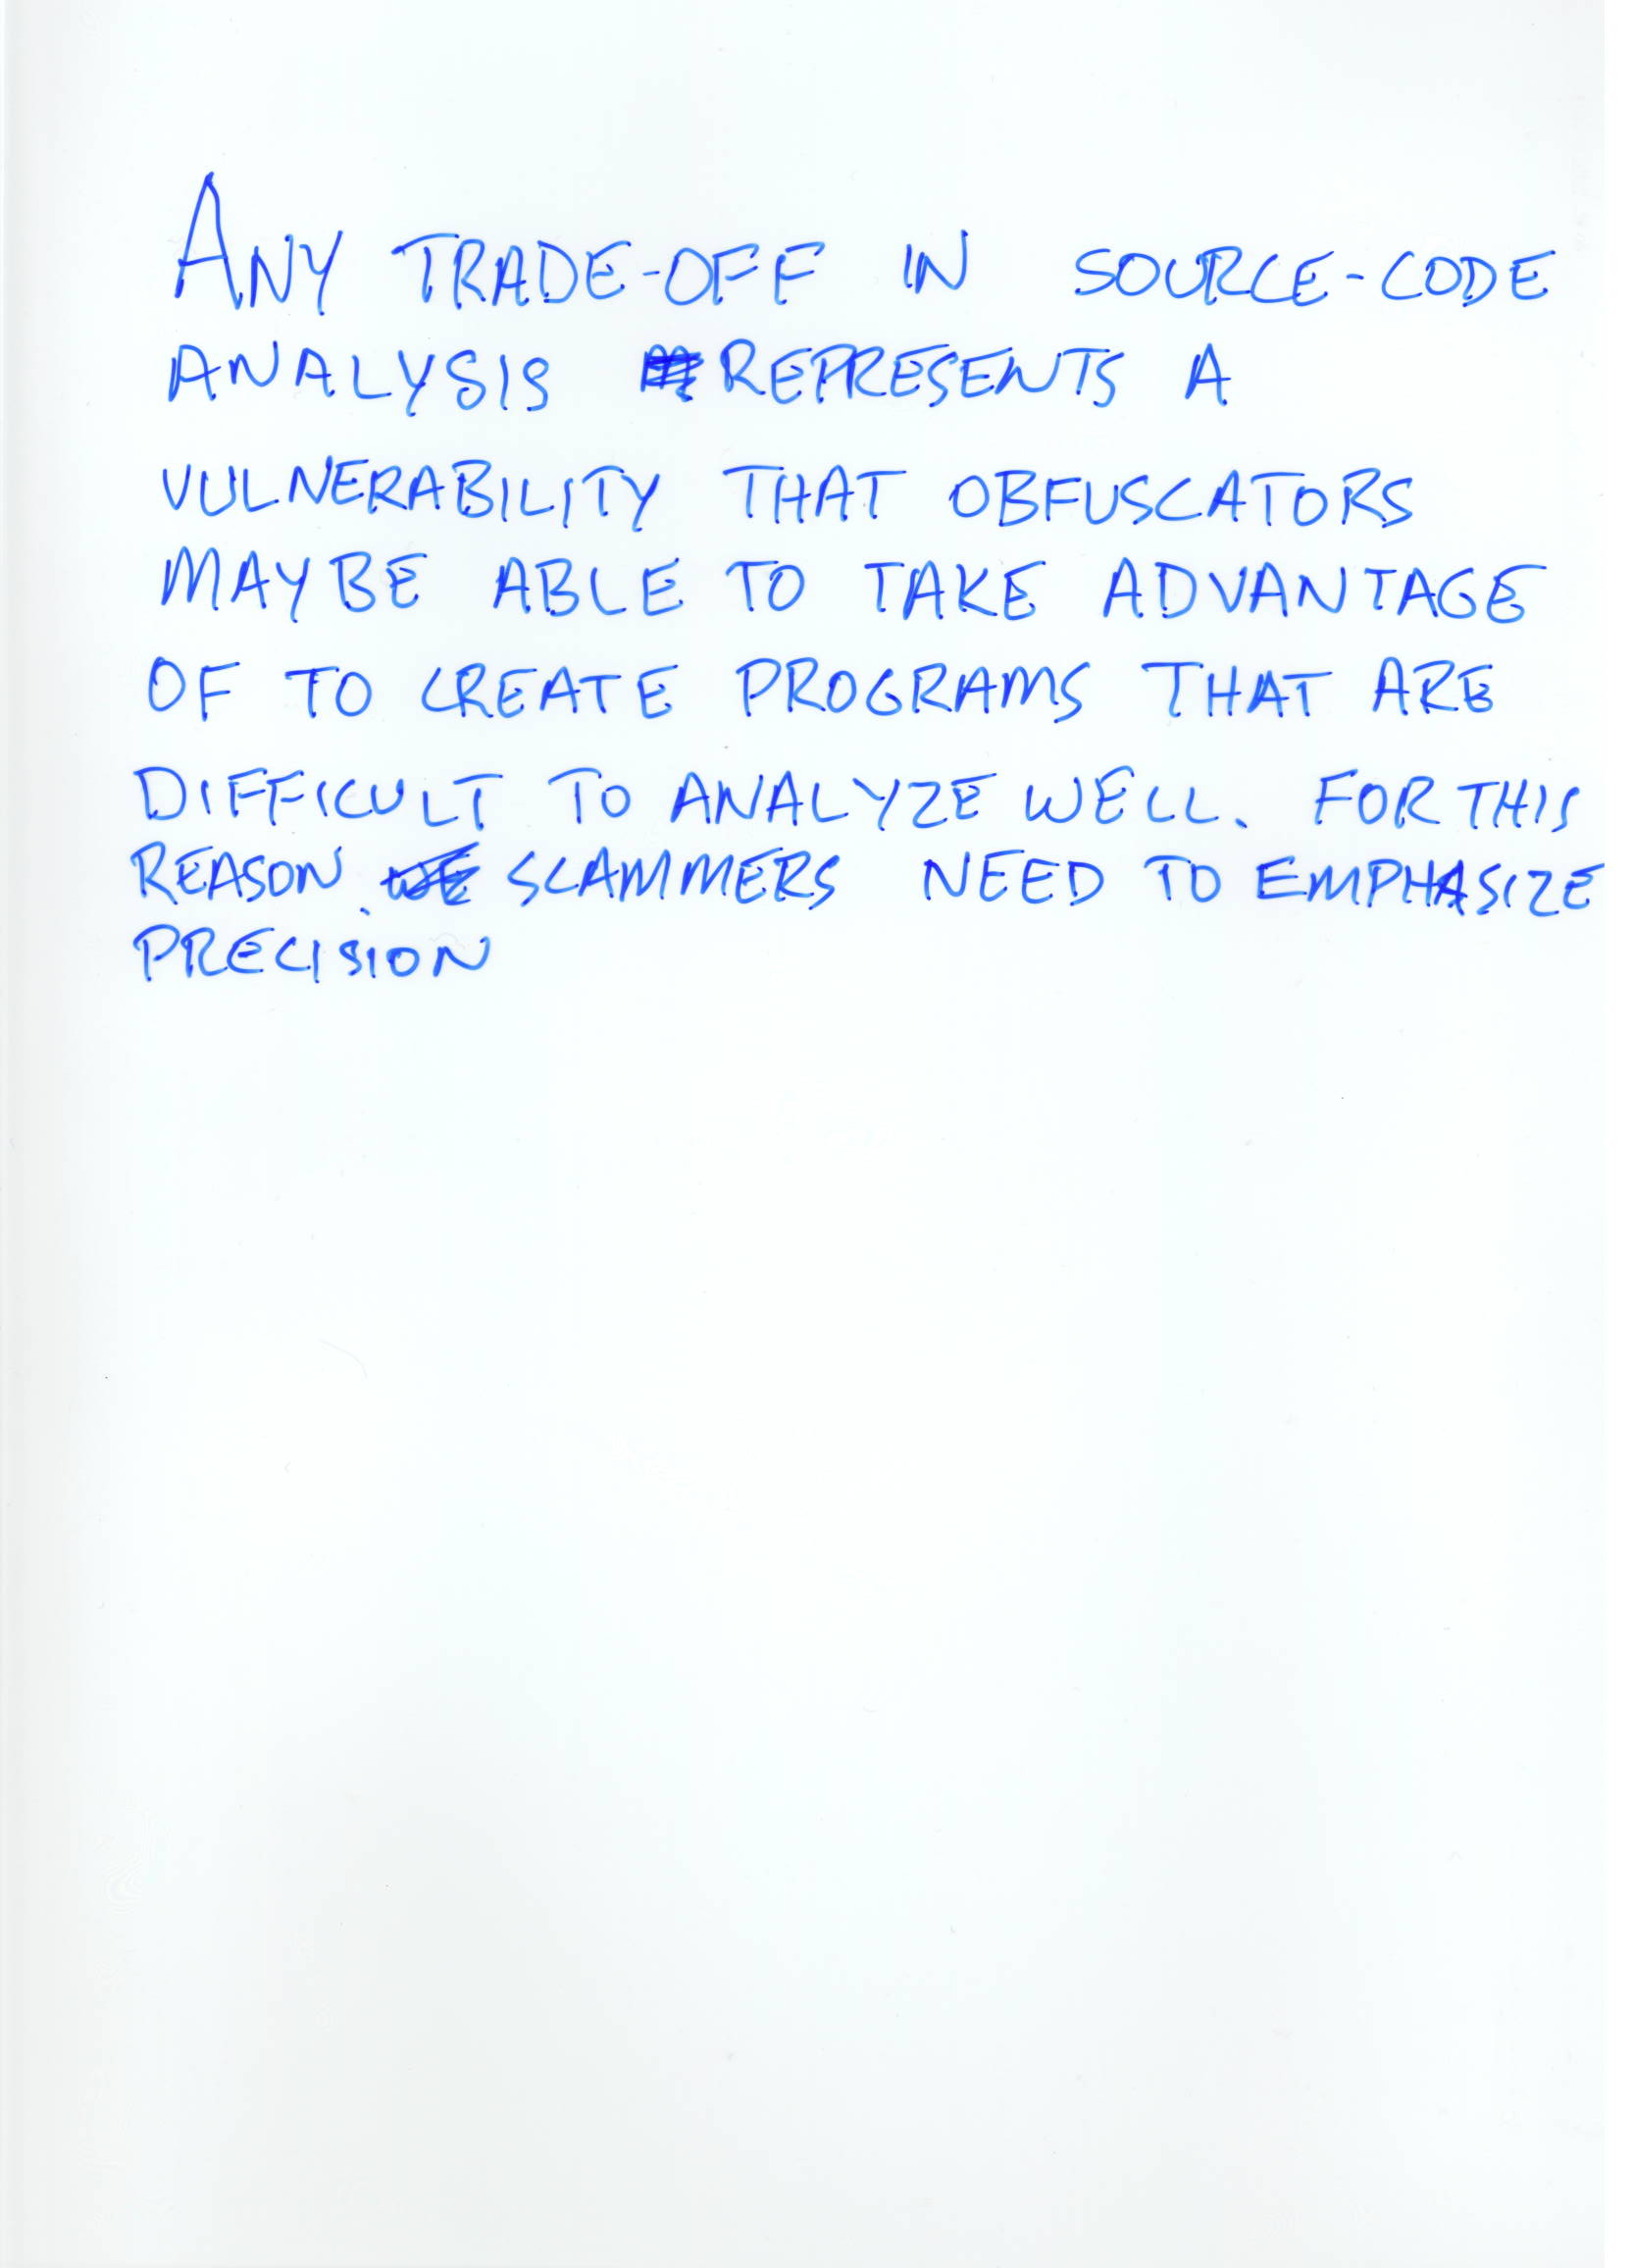 ANY TRADE-OFF IN SOURCE-CODE
ANALYSIS REPRESENTS A
VULNERABILITY THAT OBFUSCATORS
MAYBE ABLE TO TAKE ADVANTAGE
OF TO CREATE PROGRAMS THAT ARE
DIFFICULT TO ANALYZE WELL. FOR THIS
REASON, SCAMMERS NEED TO EMPHASIZE
PRECISION